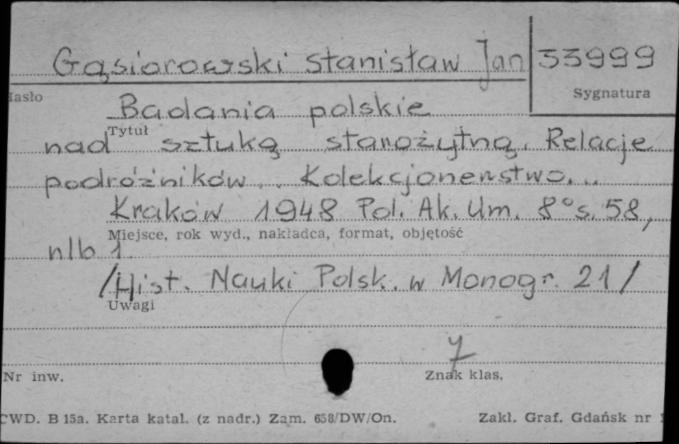 Gąsiorowski Stanisław Jan 33999
Hasło Sygnatura
Badania polskie
Tytuł
nad sztuką starożytną. Relacje
podróżników. Kolekcjonerstwo...
Kraków 1948 Pol. Ak. Um. 8° s. 58,
Miejsce, rok wyd., nakładca, format, objętość
nlb 1.
/Hist. Nauki Polsk. w Monogr. 21/
Uwagi
7
Nr inw. Znak klas.
CWD. B 15a. Karta katal. (z nadr.) Zam. 658/DW/On. Zakl. Graf. Gdańsk nr